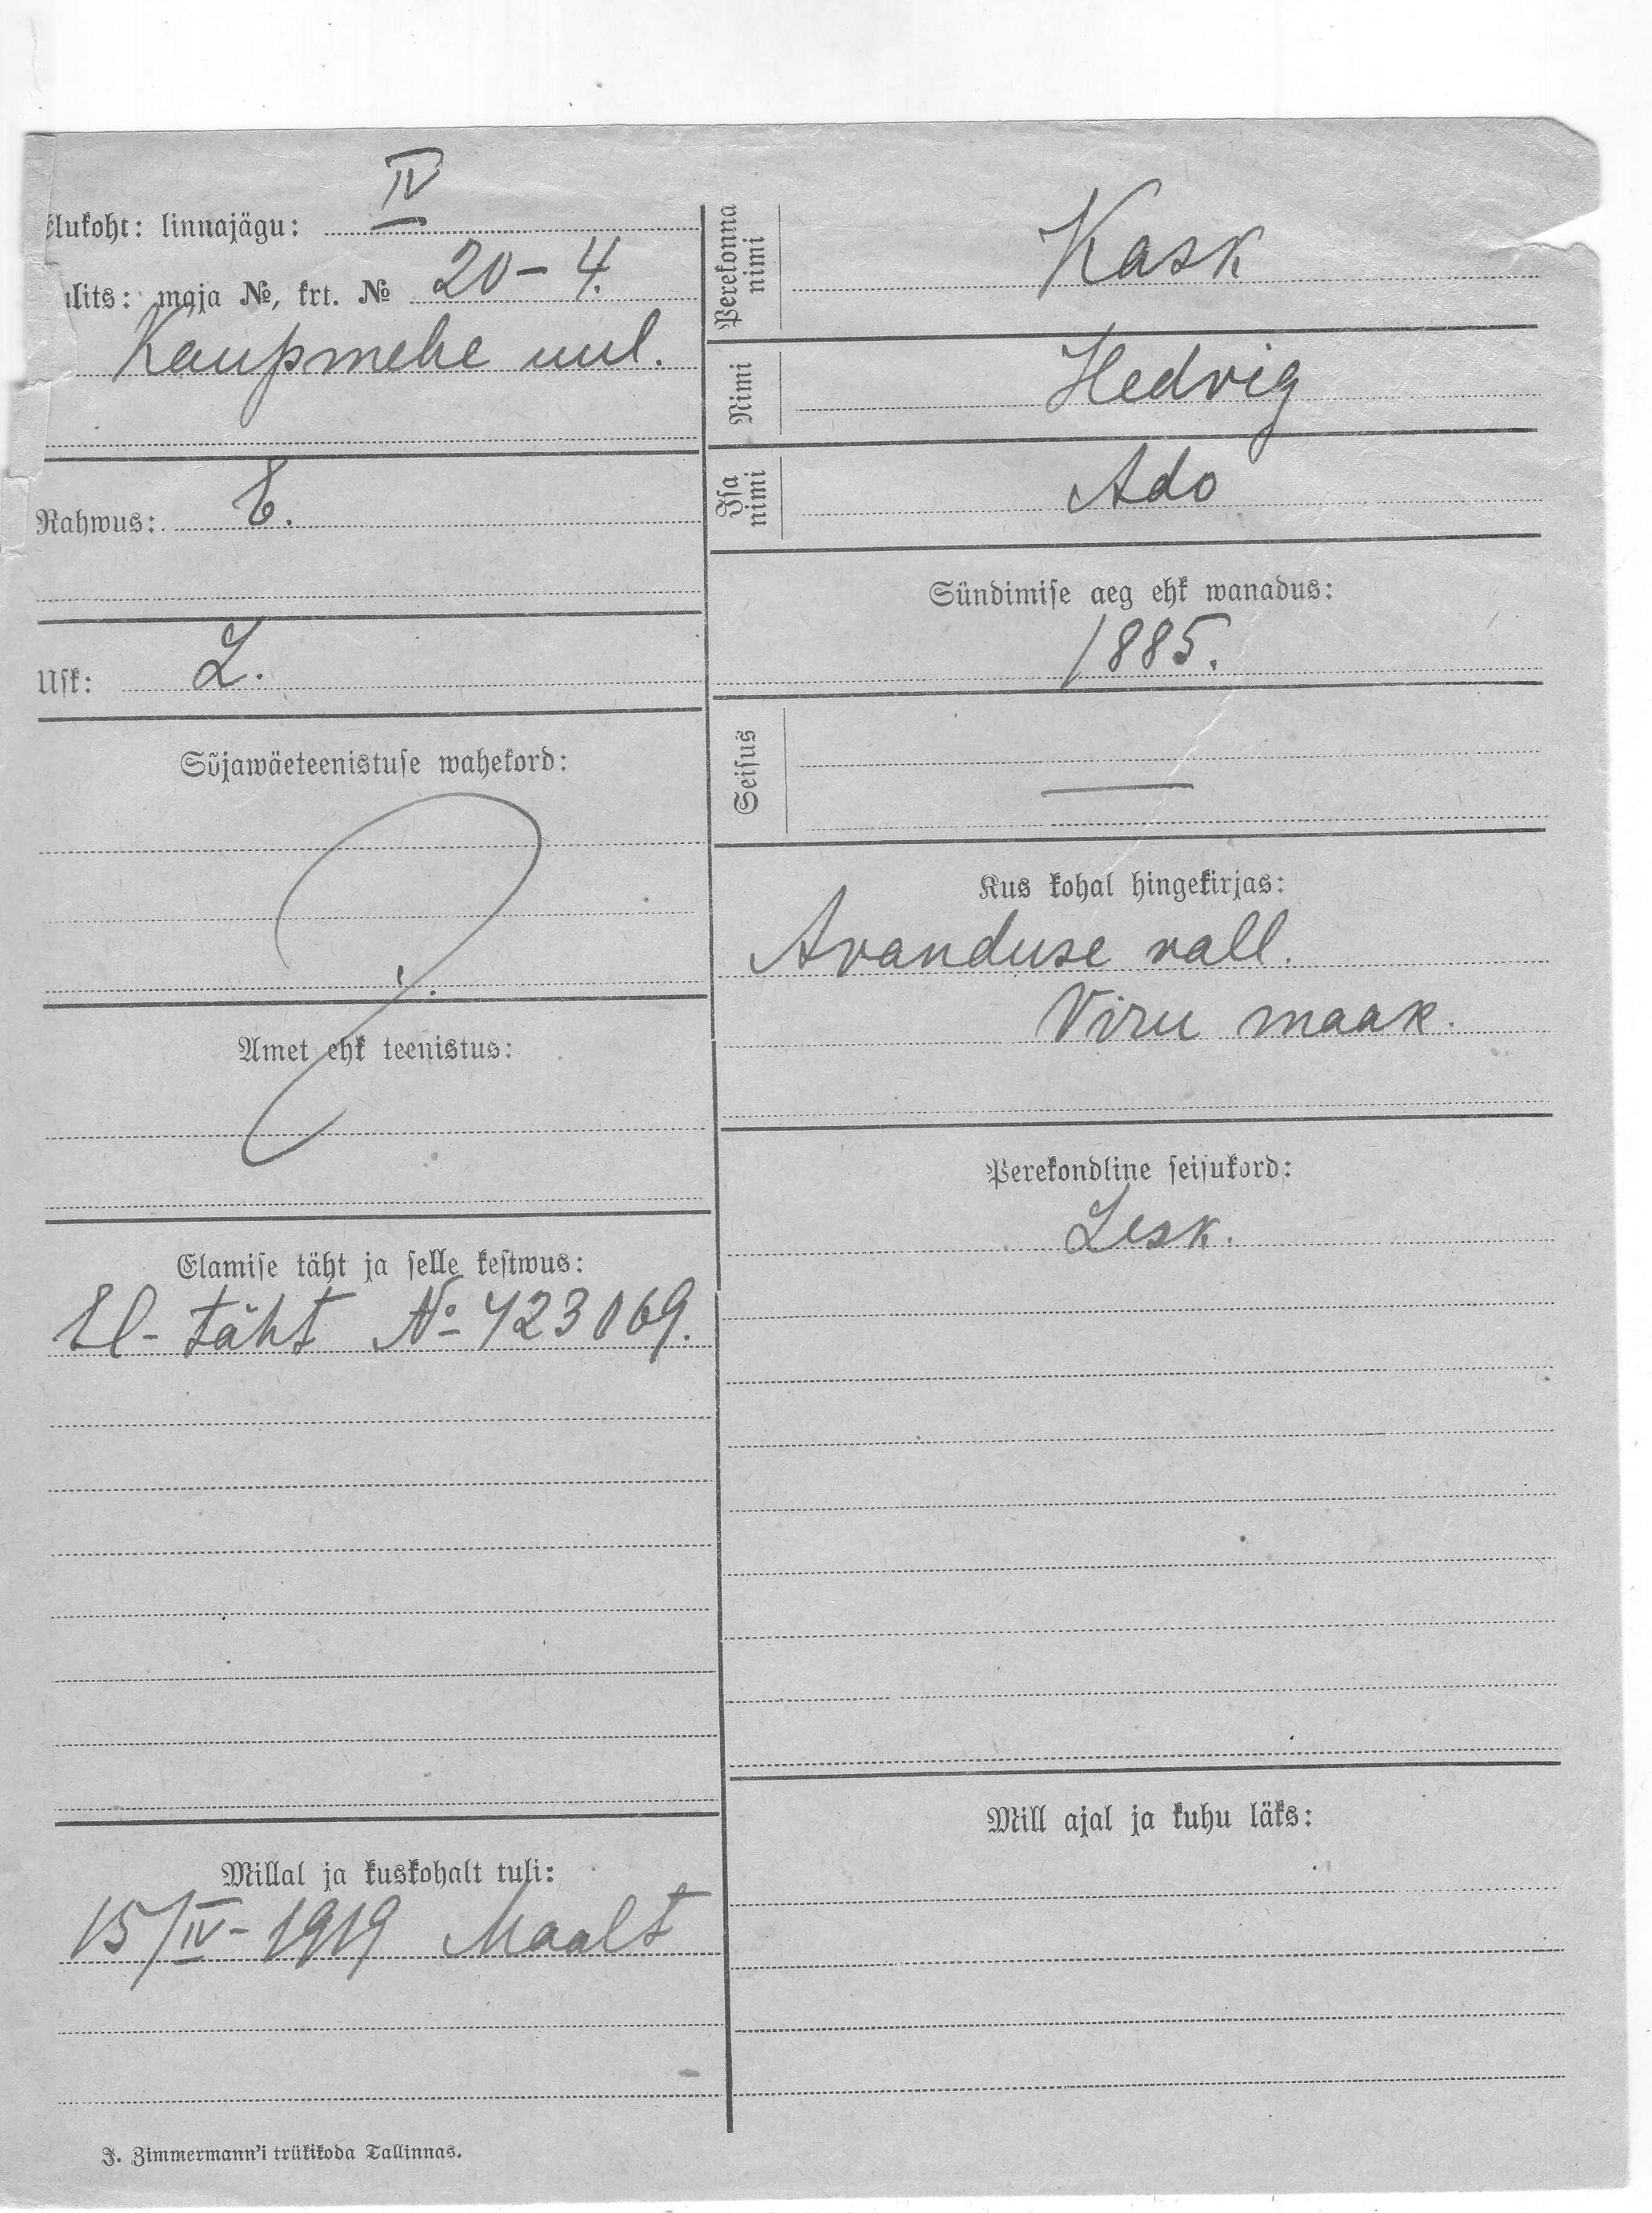 IV
Elukoht: linnajägu:
ulits: maja №, krt. № 20 – 4.
Kaupmehe uul.
Rahwus: E.
Usk: L.
Sõjawäeteenistuse wahekord:
Amet ehk teenistus:
Elamise täht ja selle kestwus:
El- täht № 423069.
Millal ja kuskohalt tuli:
15/IV - 1919 Maalt
J. Zimmermann'i trükikoda Tallinnas.
Perekonna nimi Kask
Nimi Hedvig
Isa nimi Ado
Sündimise aeg ehk wanadus:
1885.
Seisus —
Kus kohal hingekirjas:
Avanduse vall.
Viru maak.
Perekondline seisukord:
Lesk.
Mill ajal ja kuhu läks: